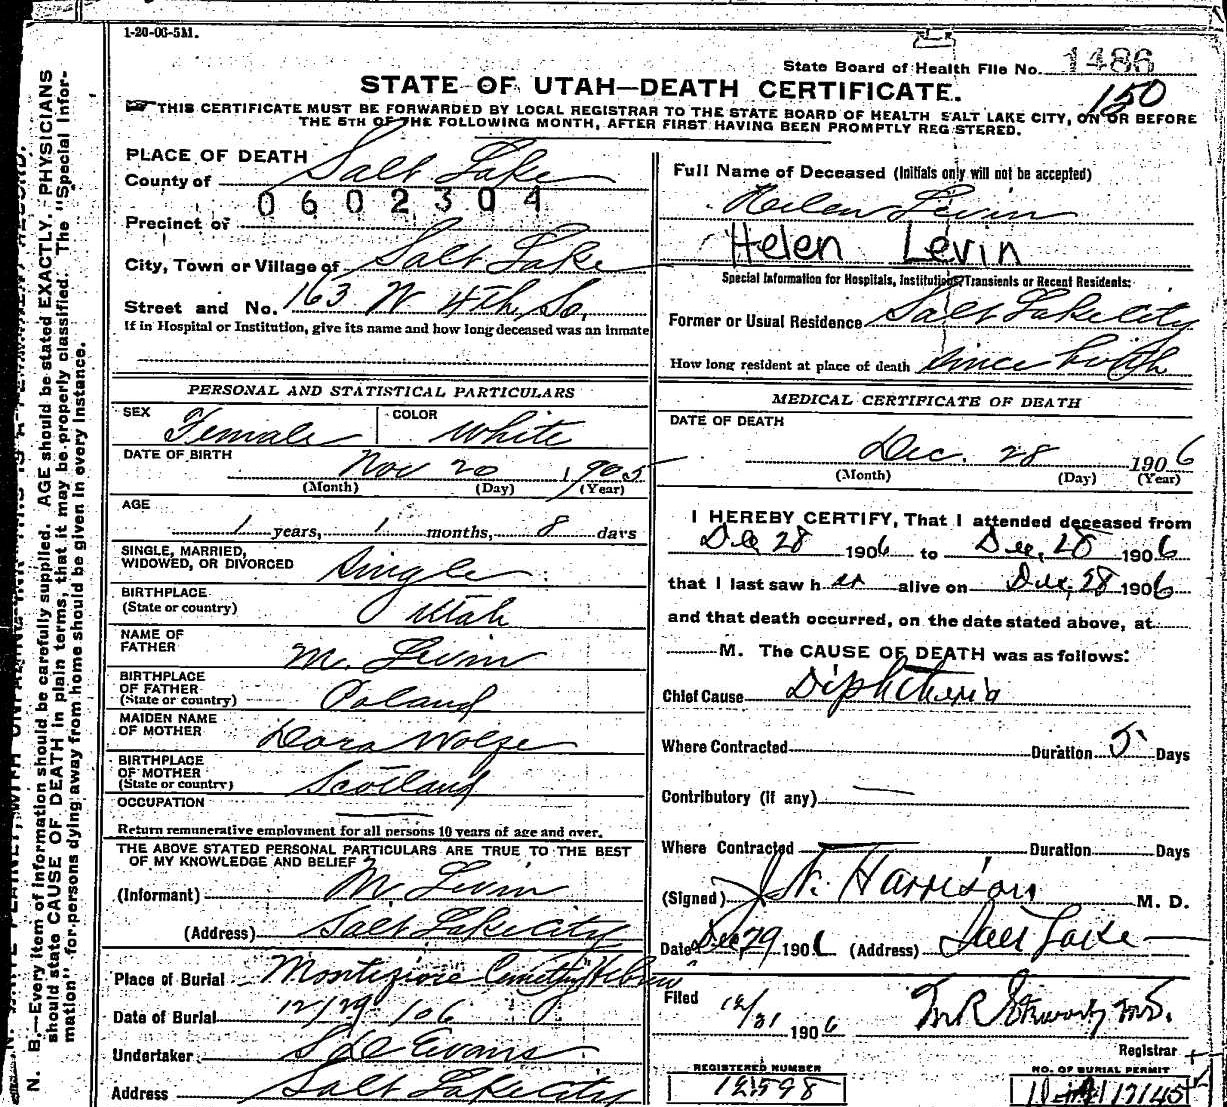 1-20-06-5M.
State Board of Health File No. 1486
150
STATE OF UTAH—DEATH CERTIFICATE.
THIS CERTIFICATE MUST BE FORWARDED BY LOCAL REGISTRAR TO THE STATE BOARD OF HEALTH SALT LAKE CITY, ON OR BEFORE
THE 5TH OF THE FOLLOWING MONTH, AFTER FIRST HAVING BEEN PROMPTLY REGISTERED.
PLACE OF DEATH
County of Salt Lake
0602304
Precinct of
City, Town or Village of Salt Lake
Street and No. 163 W 4th So.
If in Hospital or Institution, give its name and how long deceased was an inmate
PERSONAL AND STATISTICAL PARTICULARS
SEX Female COLOR White
DATE OF BIRTH Nov 20 1905
(Month) (Day) (Year)
AGE
1 years, 1 months, 8 days
SINGLE, MARRIED,
WIDOWED, OR DIVORCED Single
BIRTHPLACE
(State or country) Utah
NAME OF
FATHER M. Levin
BIRTHPLACE
OF FATHER
(State or country) Poland
MAIDEN NAME
OF MOTHER Dora Wolfe
BIRTHPLACE
OF MOTHER
(State or country) Scotland
OCCUPATION
Return remunerative employment for all persons 10 years of age and over.
THE ABOVE STATED PERSONAL PARTICULARS ARE TRUE TO THE BEST
OF MY KNOWLEDGE AND BELIEF
(Informant) M. Levin
(Address) Salt Lake City
Place of Burial Montefiore Cemetery "Hebrew"
Date of Burial 12/29/06
Undertaker S D Evans
Address Salt Lake City
Full Name of Deceased (Initials only will not be accepted)
Helen Levin
Helen Levin
Special Information for Hospitals, Institutions, Transients or Recent Residents:
Former or Usual Residence Salt Lake City
How long resident at place of death since birth
MEDICAL CERTIFICATE OF DEATH
DATE OF DEATH
Dec. 28 1906
(Month) (Day) (Year)
I HEREBY CERTIFY, That I attended deceased from
Dec 28 1906 to Dec. 28 1906
that I last saw her alive on Dec. 28 1906
and that death occurred, on the date stated above, at
M. The CAUSE OF DEATH was as follows:
Chief Cause Diphtheria
Where Contracted Duration 5 Days
Contributory (if any) —
Where Contracted Duration Days
(Signed) Harrison M. D.
Date Dec 29 1906 (Address) Salt Lake
Filed 12/31 1906
Registrar
REGISTERED NUMBER NO. OF BURIAL PERMIT
12598
N. B.—Every item of information should be carefully supplied. AGE should be stated EXACTLY. PHYSICIANS
should state CAUSE OF DEATH in plain terms, that it may be properly classified. The "Special Infor-
mation" for persons dying away from home should be given in every instance.